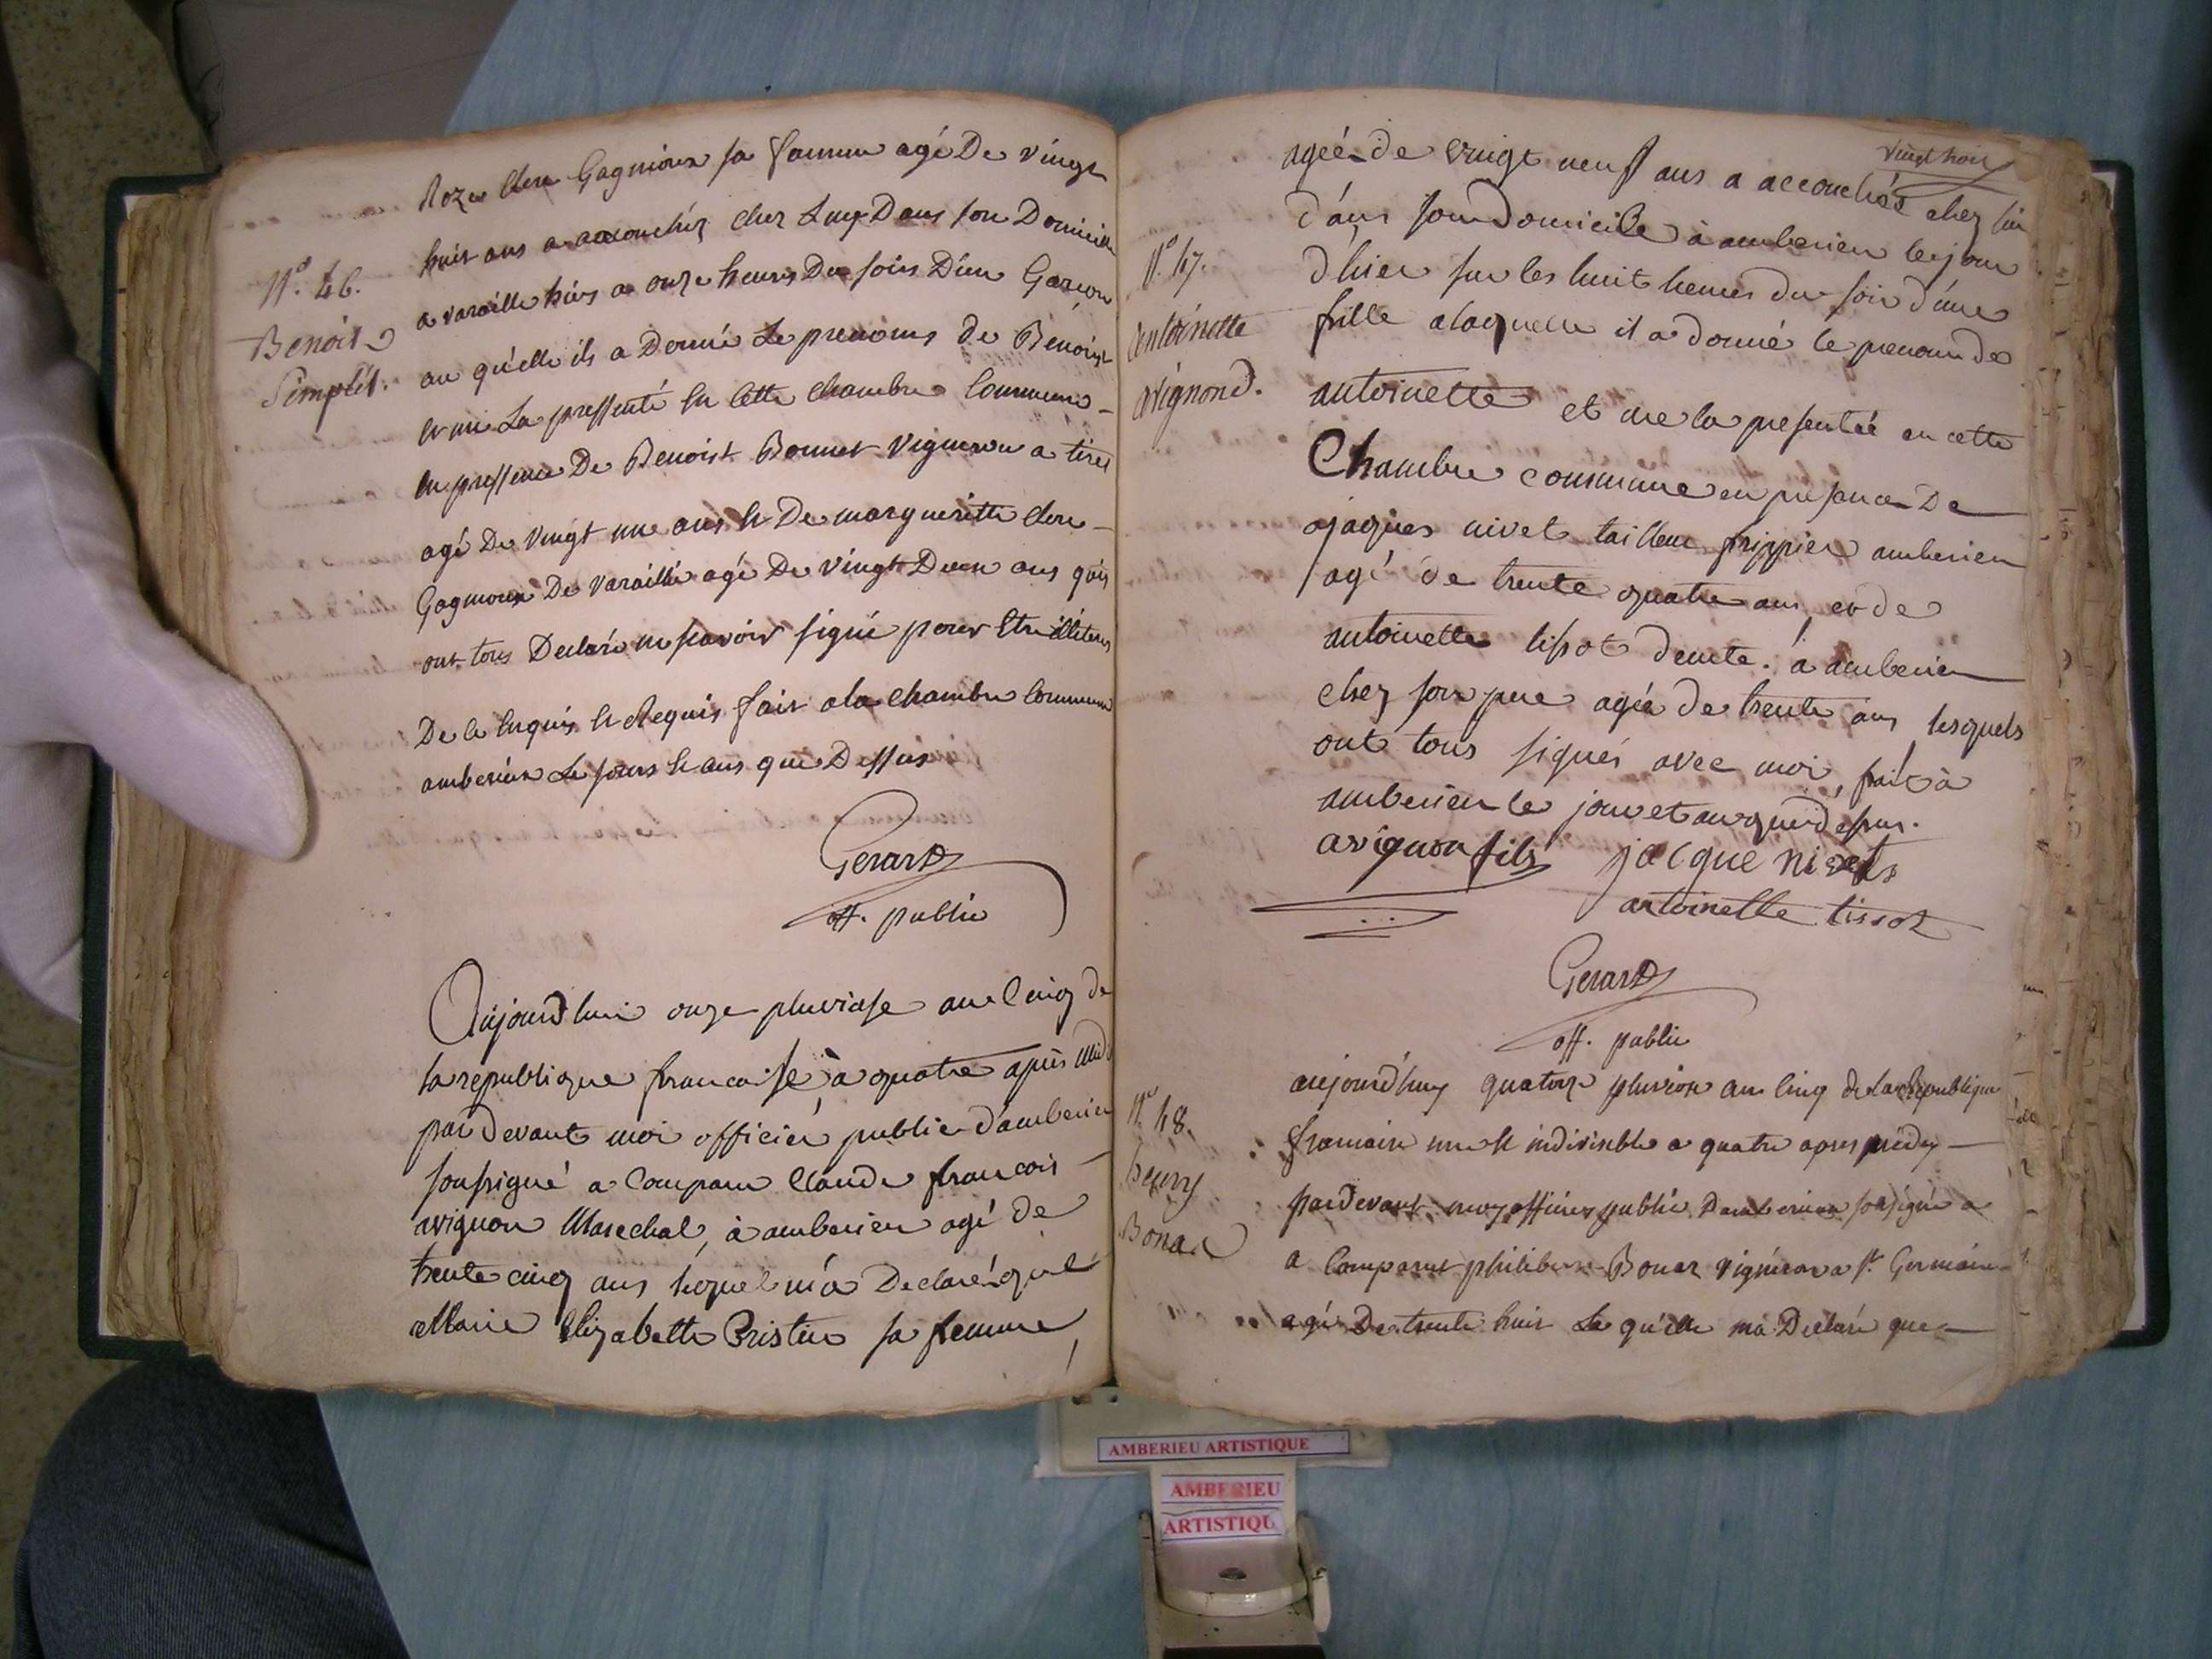 Nº. 46.
Benoit
Simplét.
Roze Clere Gagnioux sa famme agé De vingt
huit ans a accouchéz chez Luy Dans son Domicille
a varaille hiers a onze heures Du soirs D'un Garçon
au quelle ils a Donné Le prenoms de Benoist
et me La pressenté En Cette Chambre Commune
En pressence De Benoist Bonnet Vigneron a tiret
agé De Vingt une ans Et De margueritte Clere
Gagnioux De Varaille agé De Vingt Deux ans quis
ont tous Declaré ne savoir signé pour Etre illiteres
De Ce Enquis Et Requis fait a la chambre Commune
amberieux Le jours Et ans que Dessus
Gerard
off. public
Aujourd'hui onze pluviose an Cinq de
la republique francaise à quatre après Midi
par devant moi officier public d'amberieu
soussigné a Comparu Claude francois
avignon Marechal, à amberieu agé de
trente cinq ans lequel m'a Declaré que
Marie Elizabette Cristin sa femme,
vingt trois
Nº. 47.
Antoinette
Avignond.
agée de vingt neuf ans a accouchée chez lui
dans son Domicile à amberieu le jour
d'hier sur les huit heures du soir d'une
fille a laquelle il a donné le prenom de
antoinette et me la presentée en cette
Chambre commune en presence De
jaques nivet tailleur frippier amberieu
agé de trente quatre ans, et de
antoinette tissot demte. à amberieu
chez son pere agée de trente ans lesquels
ont tous signés avec moi, fait à
amberieu le jour et an que dessus.
avignon fils jacque nivets
antoinette tissot
Gerard
off. public
Nº. 48.
henry
Bonar
aujourd'huy quatorze pluviose an Cinq de La Republique
francaise une Et indivisible a quatre apres midy
pardevant moy officier public D'amberieux soussigné a
a Comparut philibert Bonar Vigneron a St. Germain
agé De trente huit Le quelle ma Declaré que
AMBERIEU ARTISTIQUE
AMBERIEU
ARTISTIQU